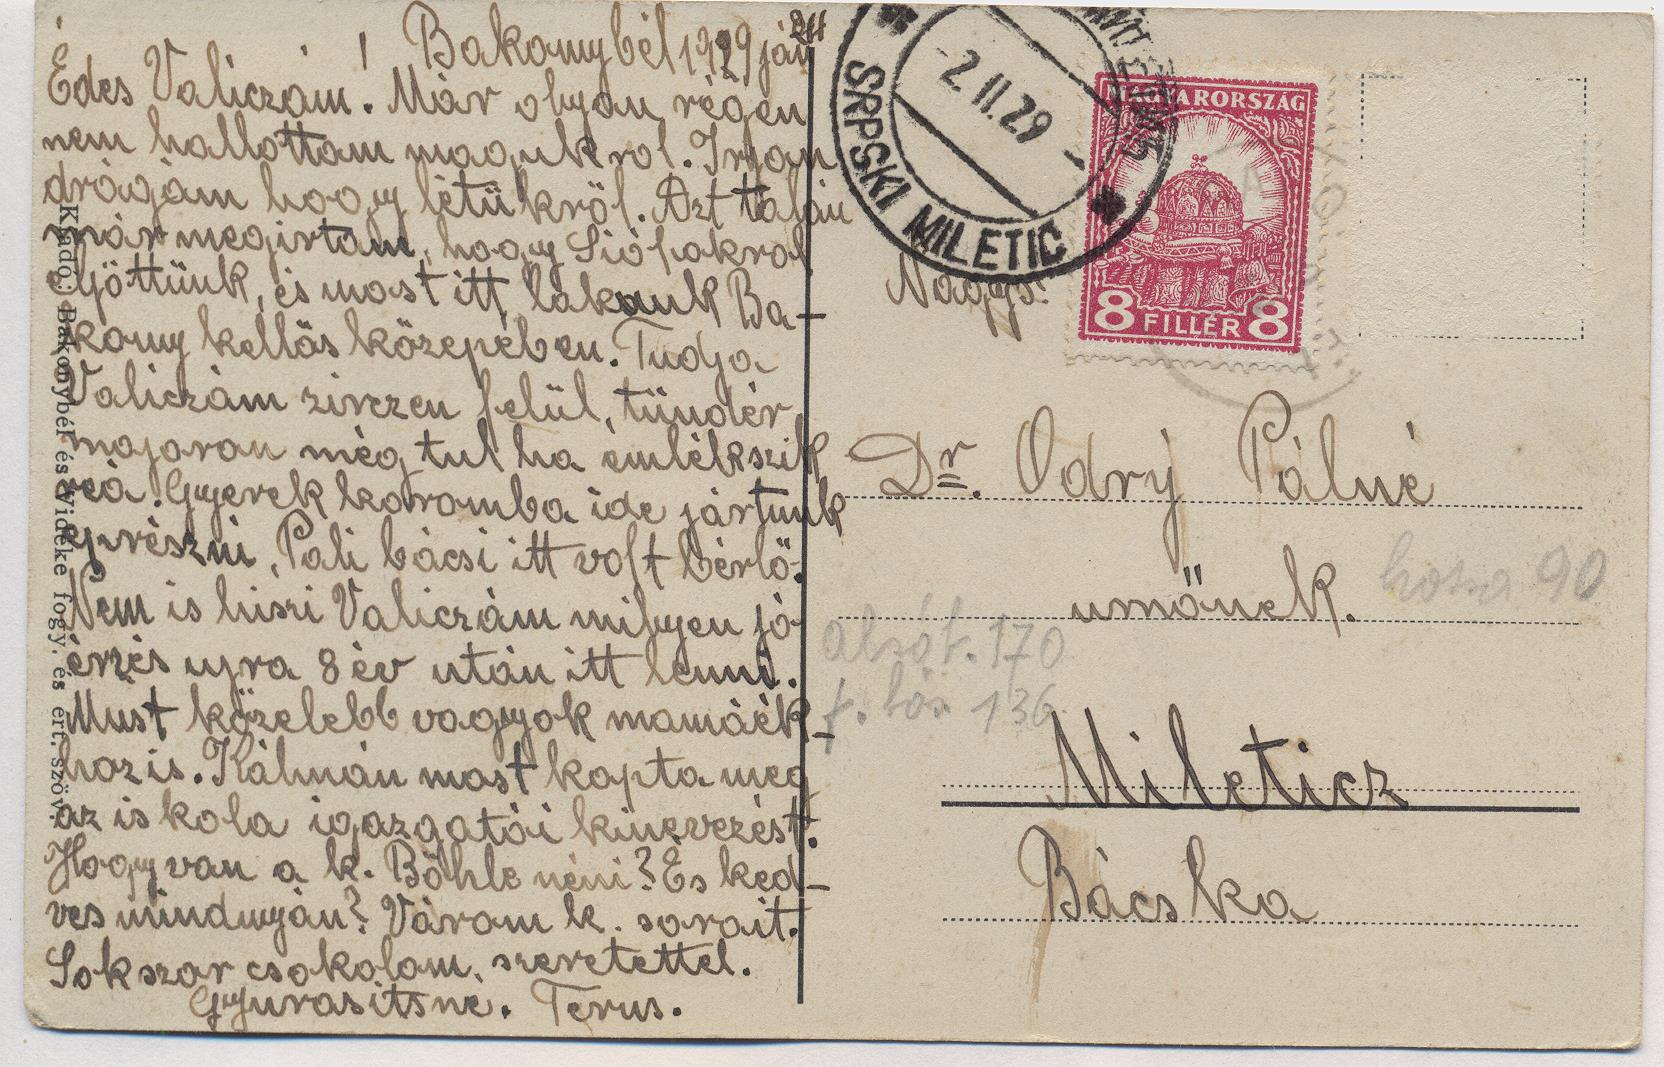 Bakonybél 1929 ján 24
Édes Valiczám! Már olyan régen
nem hallottam magukrol. Irjon
drágám hogy létükről. Azt talán
már megirtam, hogy Siófokrol
eljöttünk, és most itt lakunk Ba-
kony kellős közepében. Tudja
Valiczám zirczen felül, tündér
majoron még tul ha emlékszik
reá. Gyerek koromba ide jártunk
eprészni, Pali bácsi itt volt bérlő.
Nem is hiszi Valiczám milyen jó
érzés ujra 8 év után itt lenni.
Must közelebb vagyok mamáék-
hoz is. Kálmán most kapta meg
az iskola igazgatói kinevezést.
Hogy van a k. Böhle néni? És ked-
ves mindnyán? Várom k. sorait.
Sokszor csokolom, szeretettel.
Gyurasitsné. Terus.
Kiadó: Bakonybél és Vidéke fogy. és ért. szöv.
SRPSKI MILETIĆ
2.II.29
MAGYARORSZÁG
8 FILLÉR 8
Nagys.
Dr. Odrý Pálné
urnőnek.
hossz 90
alsót. 170
136
Mileticz
Bácska